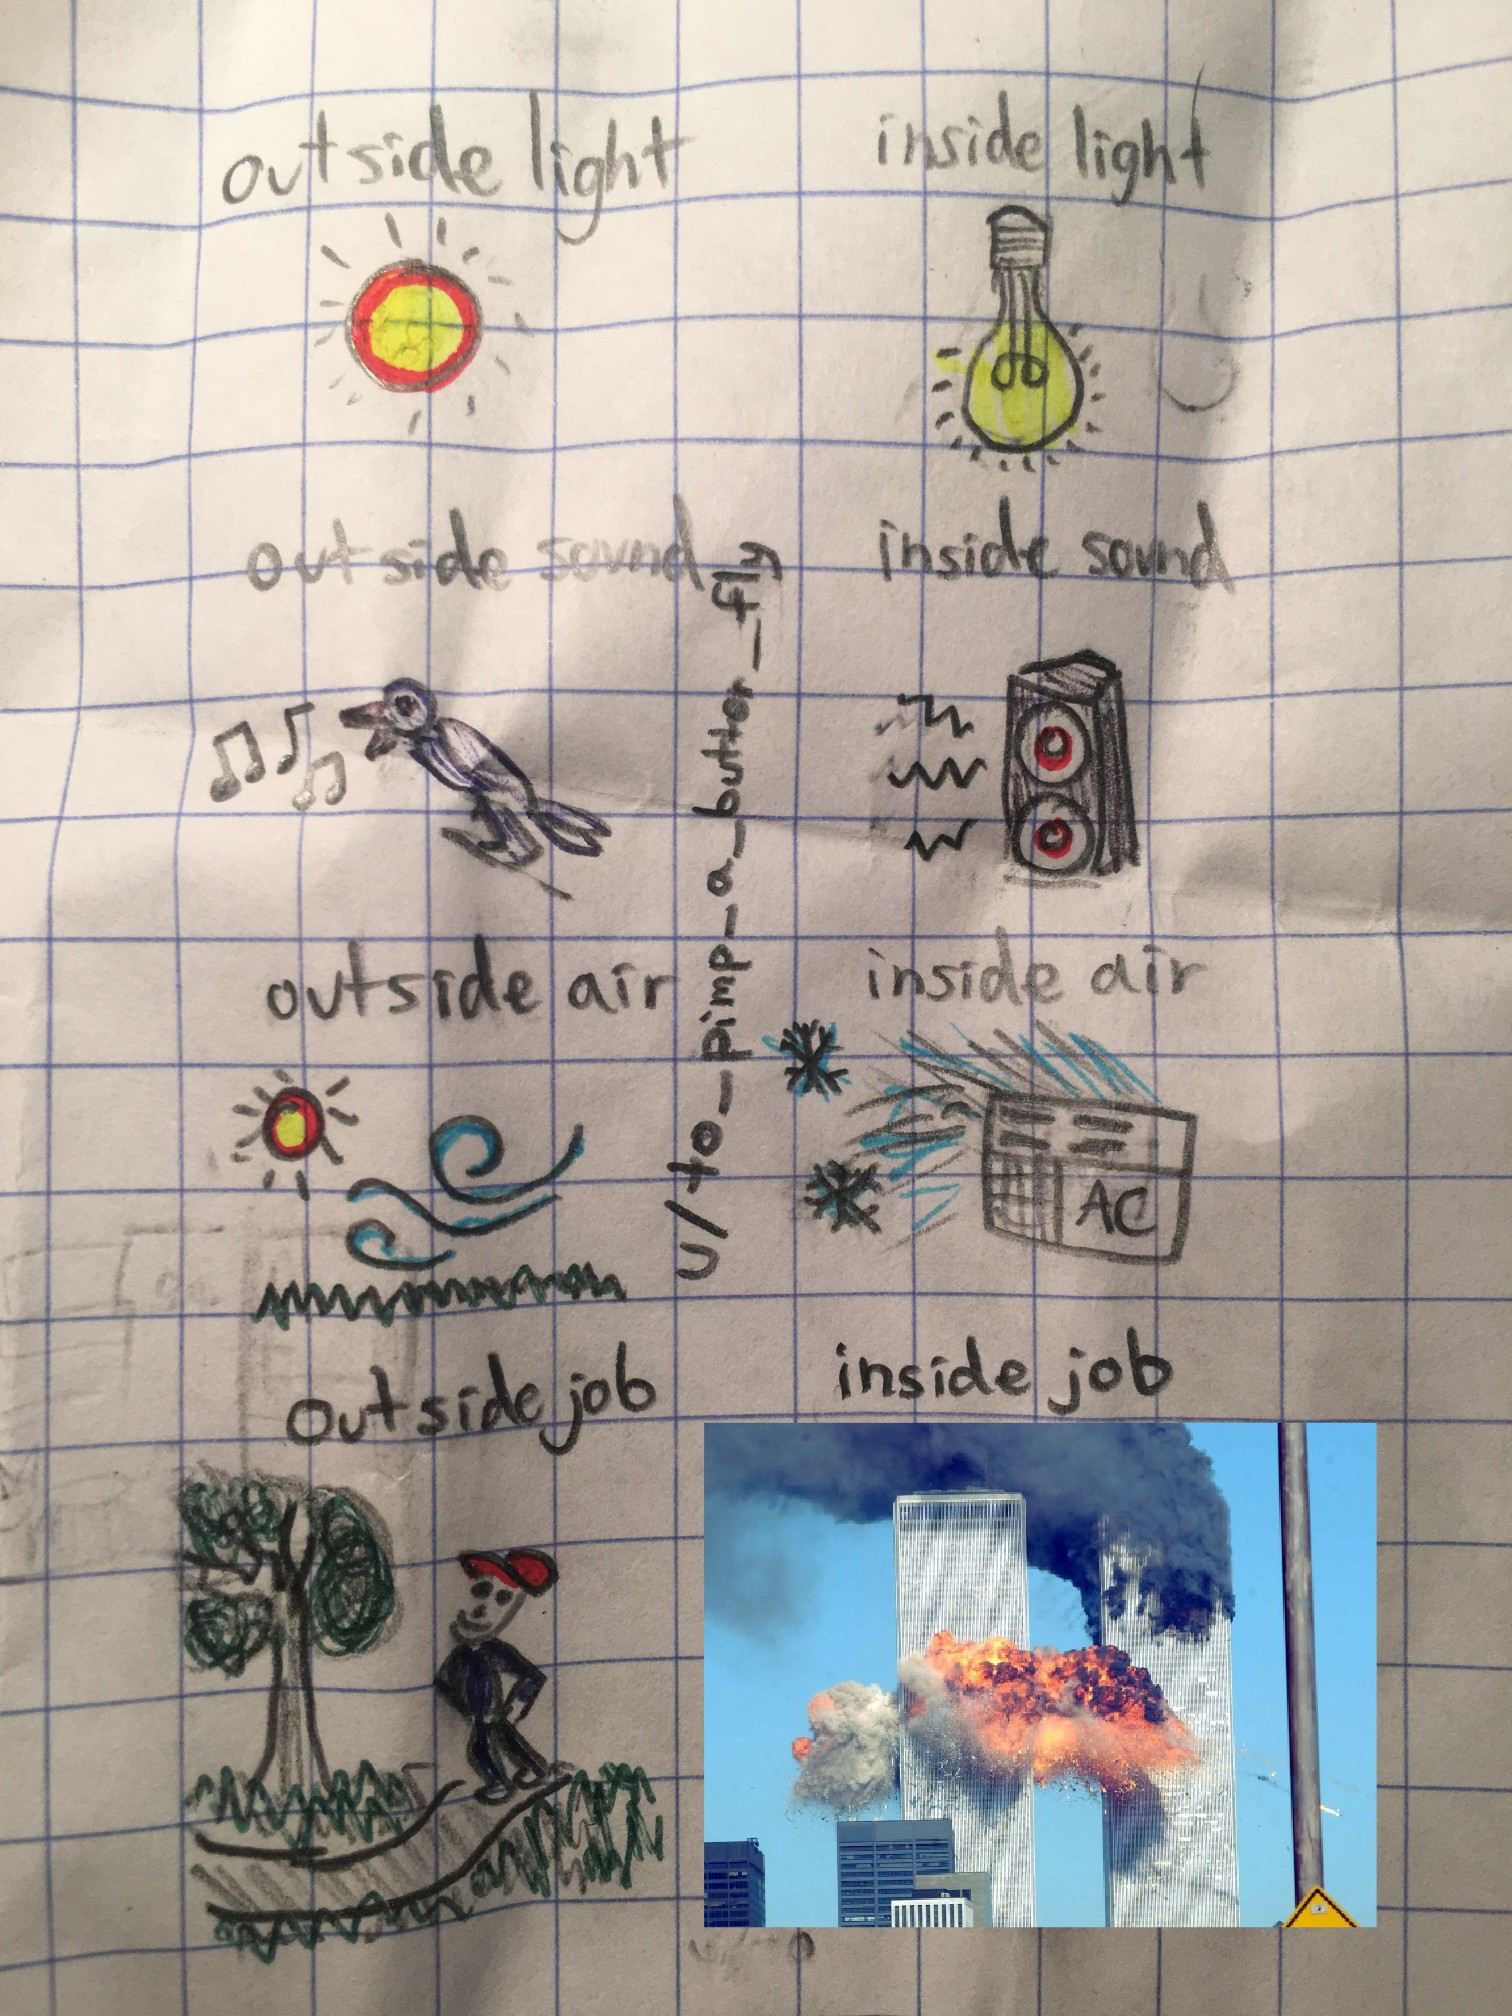 outside light
inside light
outside sound
inside sound
u/to_pimp_a_butter_fly
outside air
inside air
AC
outside job
inside job